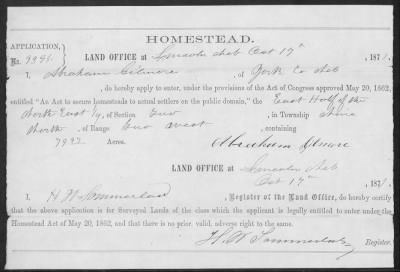 HOMESTEAD.
APPLICATION,
No. LAND OFFICE at Lincoln Neb Oct 17th 1871.
I, Abraham Gilmore, of York Co Neb
, do hereby apply to enter, under the provisions of the Act of Congress approved May 20, 1862,
entitled "An Act to secure homesteads to actual settlers on the public domain," the East Half of the
North East ¼, of Section Two, in Township Nine
North, of Range Two West containing
Acres. Abraham Gilmore
LAND OFFICE at Lincoln Neb
Oct 17th 1871.
I, H. W. Sommerlad, Register of the Land Office, do hereby certify
that the above application is for Surveyed Lands of the class which the applicant is legally entitled to enter under the
Homestead Act of May 20, 1862, and that there is no prior valid adverse right to the same.
H. W. Sommerlad
Register.